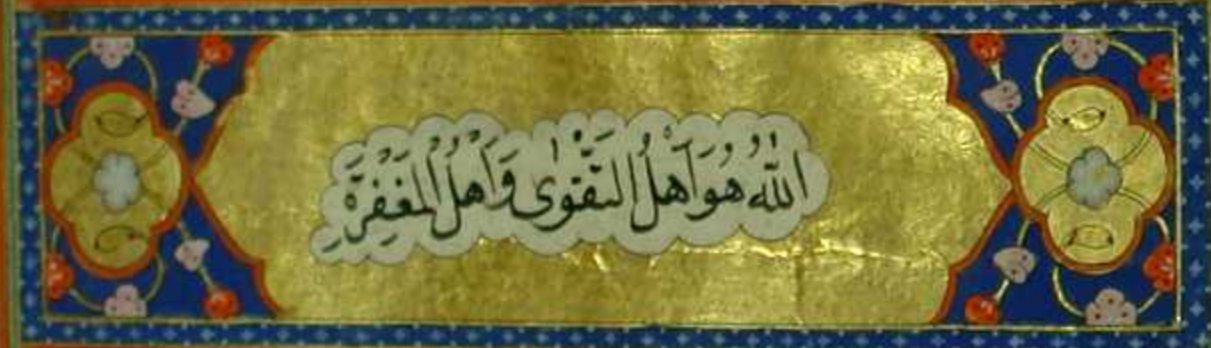 اللّٰهُ هُوَ اَهْلُ التَّقْوٰى وَاَهْلُ الْمَغْفِرَةِ